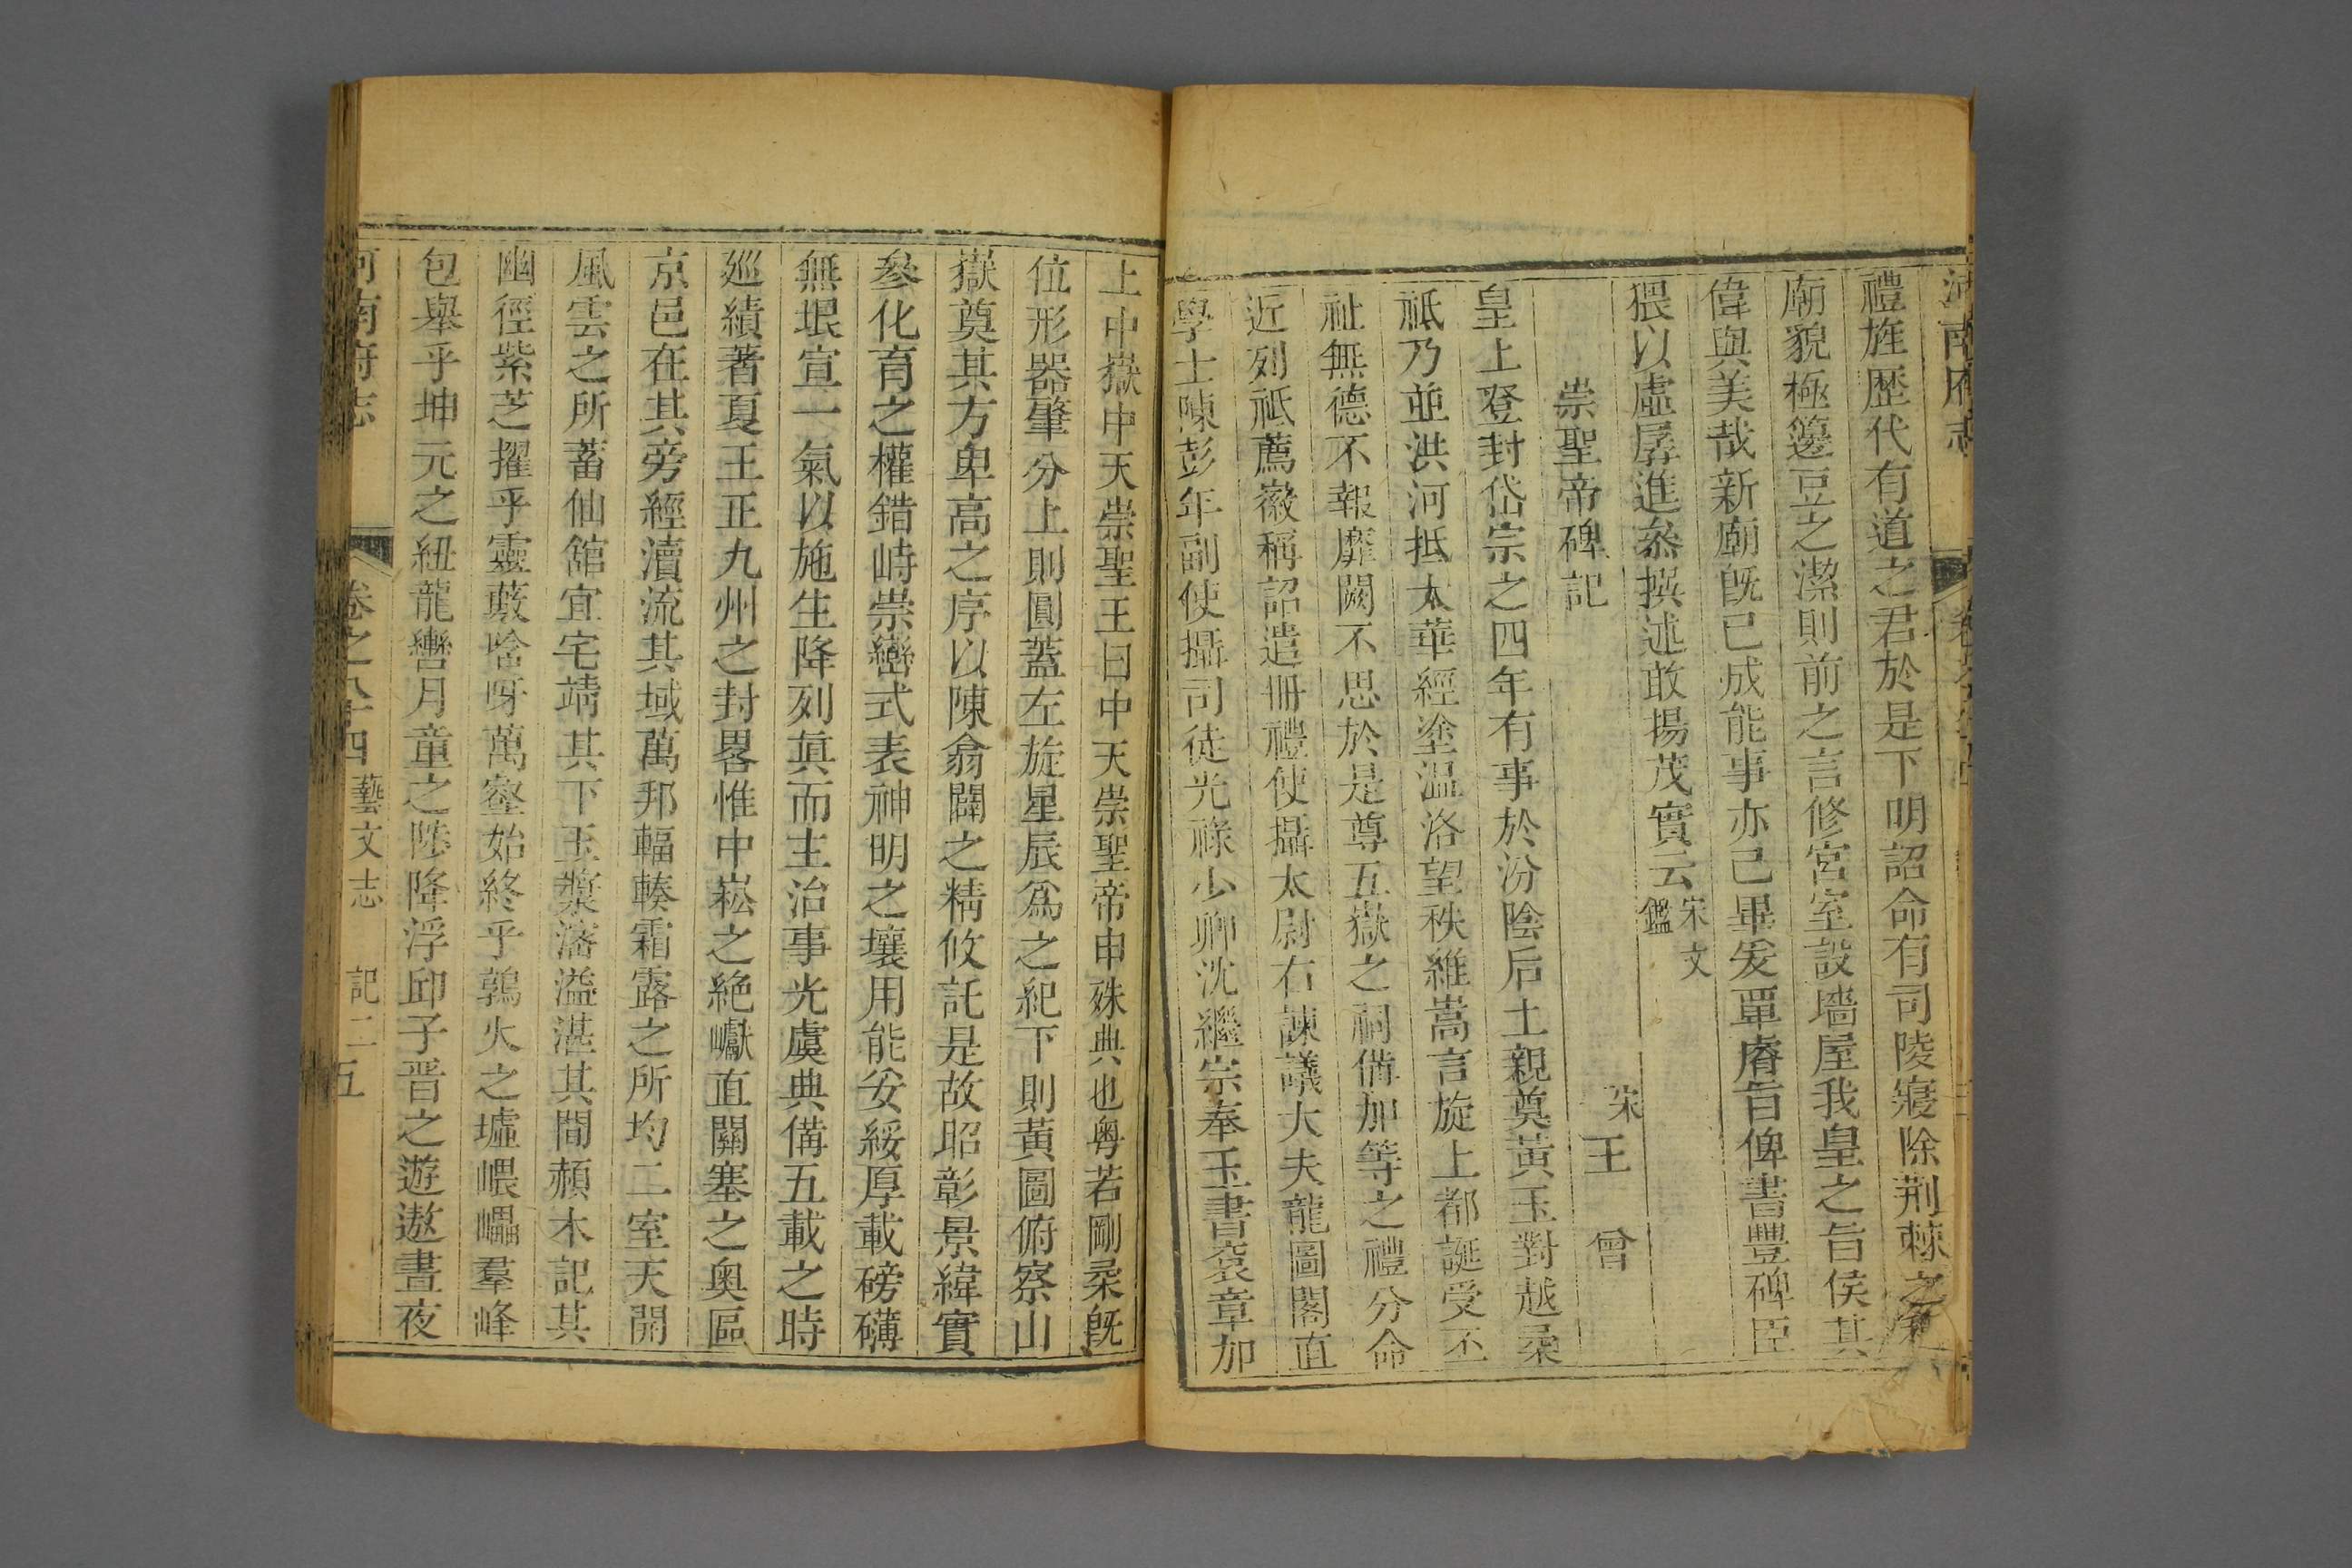 河南府志
禮旌歷代有道之君於是下明詔命有司陵寢除荆棘之
廟貌極籩豆之潔則前之言修宮室設墻屋我皇之旨俟其
偉與美哉新廟旣已成能事亦已畢爰覃睿旨俾書豐碑臣
猥以虛孱進叅撰述敢揚茂實云宋文鑑
崇聖帝碑記 宋王曾
皇上登封岱宗之四年有事於汾陰后土親奠黃玉對越柔
祇乃並洪河抵太華經塗温洛望秩維嵩言旋上都誕受丕
祉無德不報靡闕不思於是尊五嶽之祠偹加等之禮分命
近列祗薦徽稱詔遣冊禮使攝太尉右諫議大夫龍圖閣直
學士陳彭年副使攝司徒光祿少卿沈繼宗奉玉書衮章加
上中嶽中天崇聖王曰中天崇聖帝申殊典也粤若剛柔旣
位形器肇分上則圓蓋左旋星辰爲之紀下則黃圖俯察山
嶽奠其方卑高之序以陳翕闢之精攸託是故昭彰景緯實
叅化育之權錯峙崇巒式表神明之壤用能安綏厚載磅礴
無垠宣一氣以施生降列眞而主治事光虞典備五載之時
廵績著夏王正九州之封畧惟中崧之絶巘直關塞之奥區
京邑在其旁經瀆流其域萬邦輻輳霜露之所均二室天開
風雲之所蓄仙舘宜宅靖其下玉漿濬溢湛其間頳木記其
幽徑紫芝擢乎靈藪谽呀萬壑始終乎鶉火之墟㟪巁羣峰
包舉乎坤元之紐龍轡月童之陟降浮邱子晋之遊遨晝夜
河南府志 卷之八十四 藝文志 記二 五